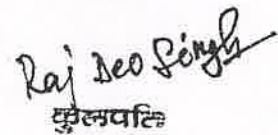 Raj Deo Singh
कुलपति